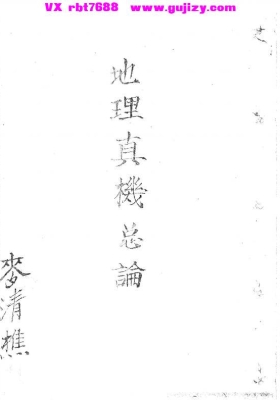 VX rbt7688 www.gujizy.com
地理真機总論
麥清樵